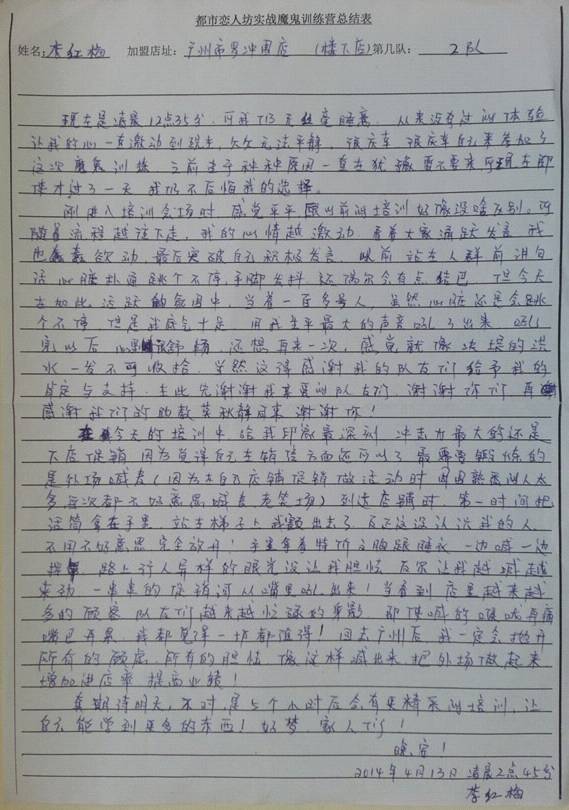 都市恋人坊实战魔鬼训练营总结表
姓名:李红梅 加盟店址:广州市罗冲围店 (楼下店)第几队: 2队
现在是凌晨12点35分,可我丁丝毫睡意,从来没有过的体验
让我的心一直激动到现在,久久无法平静,很庆幸,很庆幸自己来参加了
这次魔鬼训练,之前由于种种原因一直在犹豫要不要来,可现在即
使才过了一天,我仍不后悔我的选择。
刚进入培训会场时,感觉平平跟以前的培训好像没啥区别。可
随着流程越往下走,我的心情越激动,看着大家踊跃发言,我
也蠢蠢欲动,最后突破自己积极发言,以前站在人群前讲句
话心脏扑通跳个不停,手脚发抖,还偶尔会有点结巴,但今天
在如此活跃的氛围中,当着一百多号人,虽然心脏还是会跳
个不停,但是我底气十足,用我生平最大的声音吼了出来,吼
完以后心里舒畅,还想再来一次,感觉就像决堤的洪
水一发不可收拾,当然这得感谢我的队友们给予我的
肯定与支持,在此先谢谢我亲爱的队友们,谢谢你们,再
感谢我们的助教蔡秋静同来,谢谢你!
在今天的培训中,给我印象最深刻,冲击力最大的还是
下店促销,因为觉得自己在销售方面还可以了,最需要锻炼的
是外场喊麦(因为在自己店铺促销做活动时,周围熟悉的人太
多每次都不好意思喊麦,怕笑场)到达店铺时,第一时间把
话筒拿在手里,站在梯子上,我豁出去了,反正这没认识我的人,
不用不好意思,完全放开!手里拿着特价文胸跟睡衣一边喊一边
挥,路上行人异样的眼光没让我胆怯,反尔让我越喊越
来劲,一串串的促销词从嘴里吼出来!当看到店里越来越
多的顾客,队友们越来越忙碌的身影,即使喊的喉咙再痛
嘴巴再累,我都觉得一切都值得!回去广州后,我一定会抛开
所有的顾虑,所有的胆怯,像这样喊出来,把外场做起来
增加进店率,提高业绩!
真期待明天,不对,是5个小时后会有更精采的培训,让
自己能学到更多的东西!好梦,家人们!
晚安!
2014年4月13日凌晨2点45分
李红梅